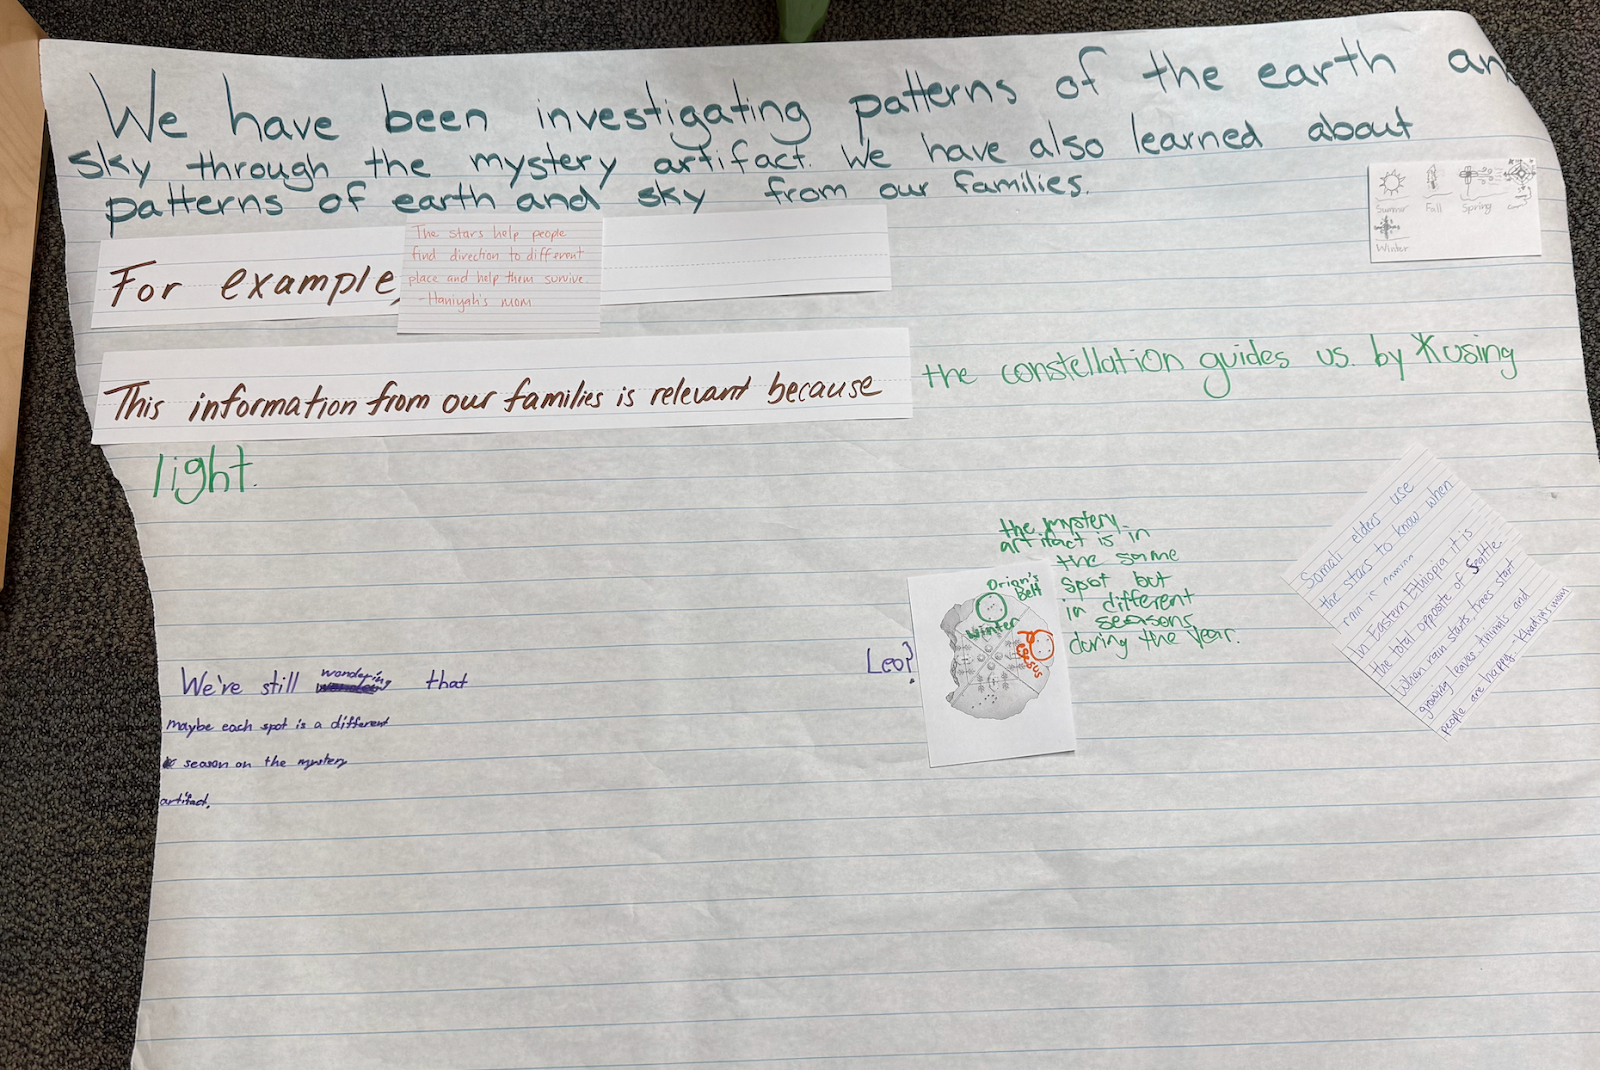 We have been investigating patterns of the earth an
sky through the mystery artifact. We have also learned about
patterns of earth and sky from our families.
Summer Fall Spring
Winter
For example,
The stars help people
find direction to different
place and help them survive.
-Haniyah's mom
This information from our families is relevant because the constellation guides us. by using
light.
Somali elders use
the stars to know when
rain is coming
In Eastern Ethiopia it is
the total opposite of Seattle.
When rain starts, trees start
growing leaves. Animals and
people are happy. - Khadija's mom
the mystery
artifact is in
the same
spot but
in different
seasons
during the year.
Orion's
Belt
Winter
Leo?
We're still wondering that
maybe each spot is a different
season on the mystery
artifact.